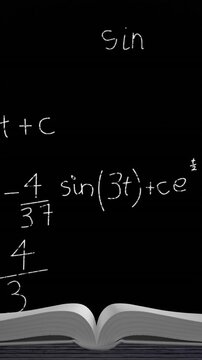 sin
t + c
- 4/37 sin(3t) + ce^t/2
4/3